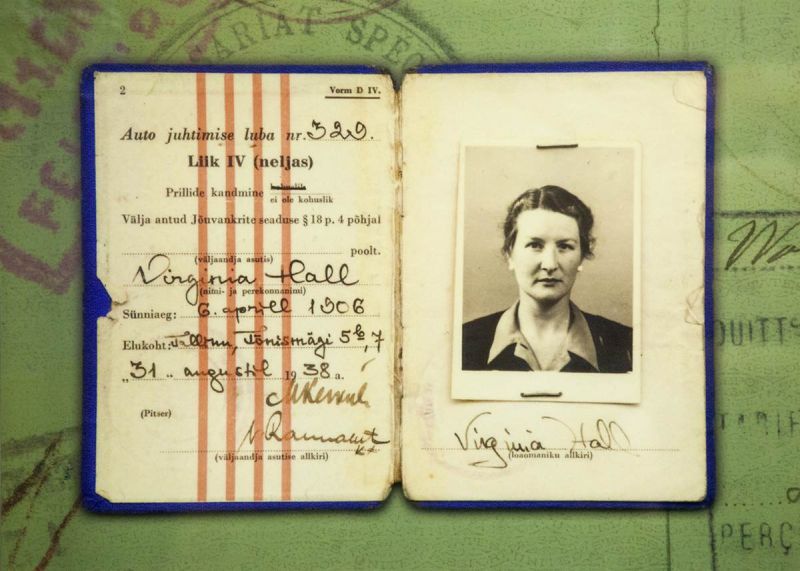 ARIAT SPEC
2
Vorm D IV.
Auto juhtimise luba nr. 329.
Liik IV (neljas)
Prillide kandmine kohuslik
ei ole kohuslik
Välja antud Jõuvankrite seaduse § 18 p. 4 põhjal
poolt.
(väljaandja asutis)
Virginia Hall
(nimi- ja perekonnanimi)
Sünniaeg: 6. aprill 1906
Elukoht: Tallinn, Tõnismägi 5b, 7
"31" augustil 1938 a.
(Pitser)
(väljaandja asutise allkiri)
Virginia Hall
(loaomaniku allkiri)
QUITT
TARIF
PERÇ